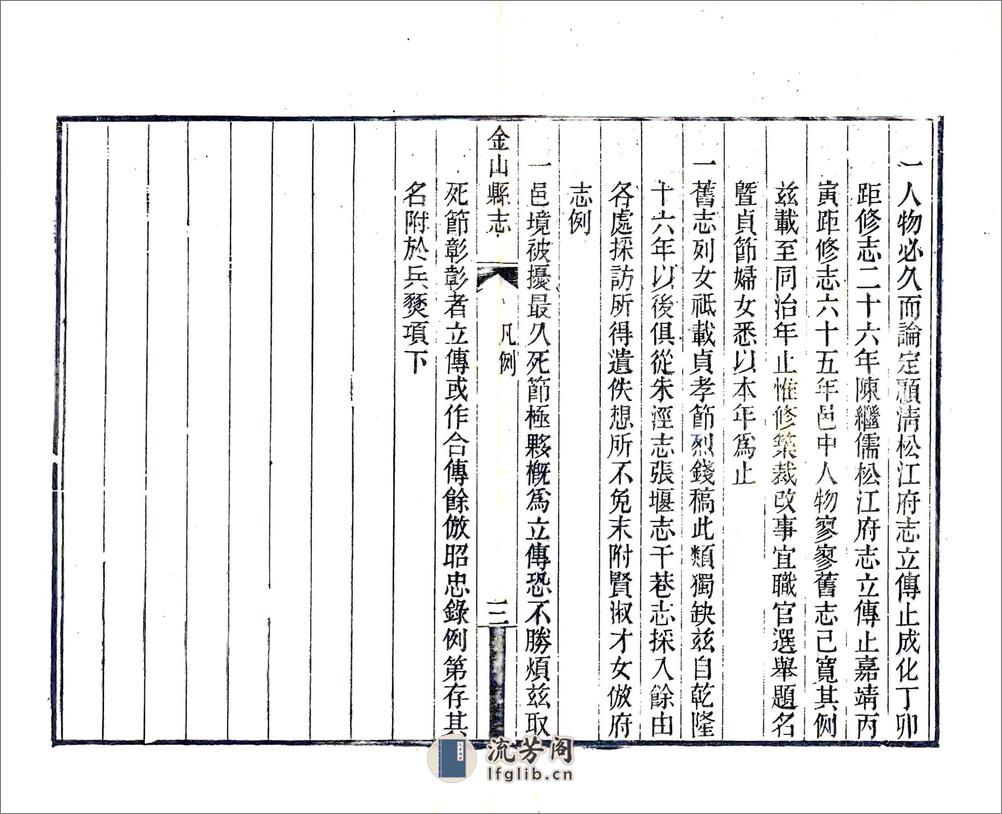 一人物必久而論定顧淸松江府志立傳止成化丁卯
距修志二十六年陳繼儒松江府志立傳止嘉靖丙
寅距修志六十五年邑中人物寥寥舊志已寬其例
兹載至同治年止惟修築裁改事宜職官選舉題名
曁貞節婦女悉以本年爲止
一舊志列女祇載貞孝節烈錢稿此類獨缺兹自乾隆
十六年以後俱從朱涇志張堰志干巷志採入餘由
各處採訪所得遺佚想所不免末附賢淑才女倣府
志例
一邑境被擾最久死節極夥槪爲立傳恐不勝煩兹取
金山縣志
凡例
三
死節彰彰者立傳或作合傳餘倣昭忠錄例第存其
名附於兵燹項下
流芳阁
lfglib.cn